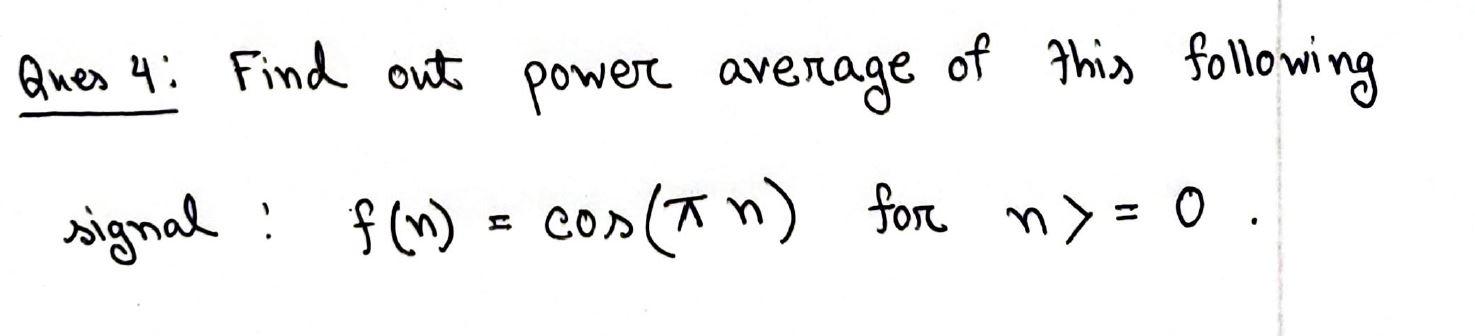 Ques 4: Find out power average of this following
signal : f(n) = cos(π n) for n >= 0 .